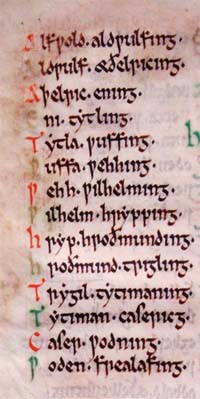 Alfƿold · aldƿulfing ·
Aldƿulf · æðelricing ·
Æþelric · ening ·
Eni · tẏtling ·
Tẏtla · ƿuffing ·
Ƿuffa · ƿehhing ·
Ƿehh · ƿilhelming ·
Ƿilhelm · hrẏpping ·
Hrẏp · hroðmunding ·
Hroðmund · trigling ·
Trẏgil · tẏtimaning ·
Tẏtiman · casericg ·
Caser · ƿodning ·
Ƿoden · frealafing ·